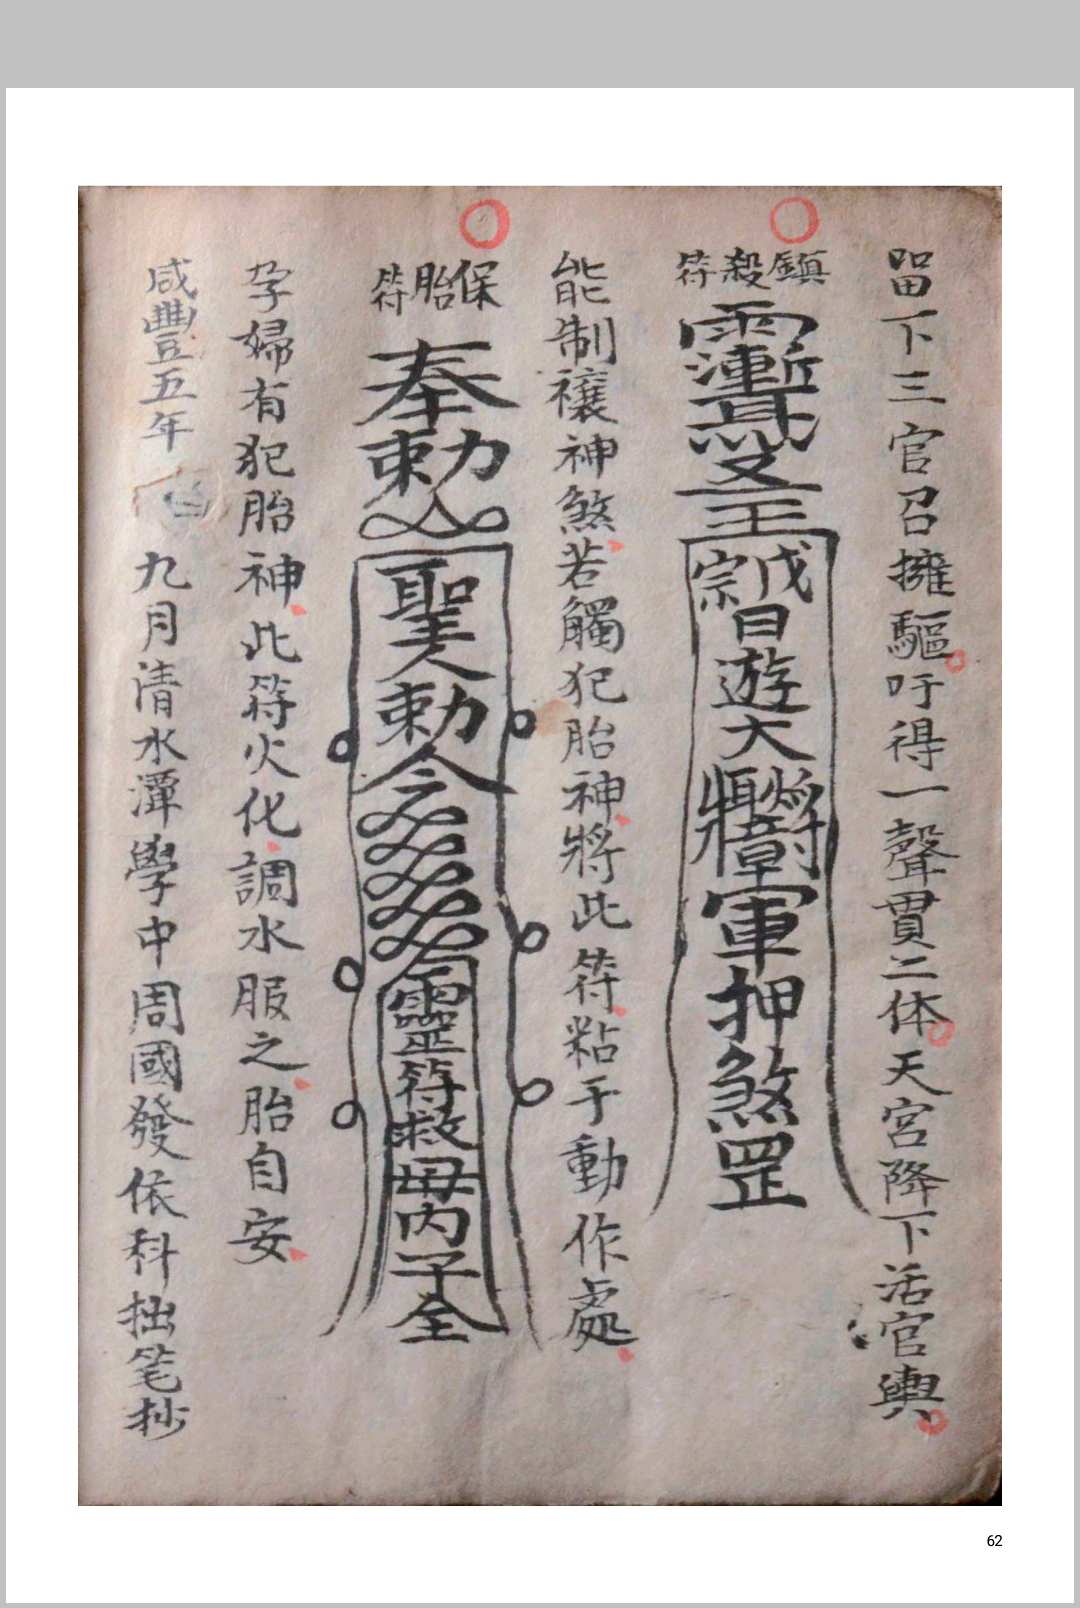 留下三官召擁驅吁得一聲貫二体天宮降下活官輿
鎮殺符
王
戊日遊大
軍押煞罡
能制禳神煞若觸犯胎神將此符粘于動作處
保胎符
奉勅
聖人勅令
靈符救母內子全
孕婦有犯胎神此符火化調水服之胎自安
咸豐五年 九月清水潭學中周國發依科拙笔抄
62